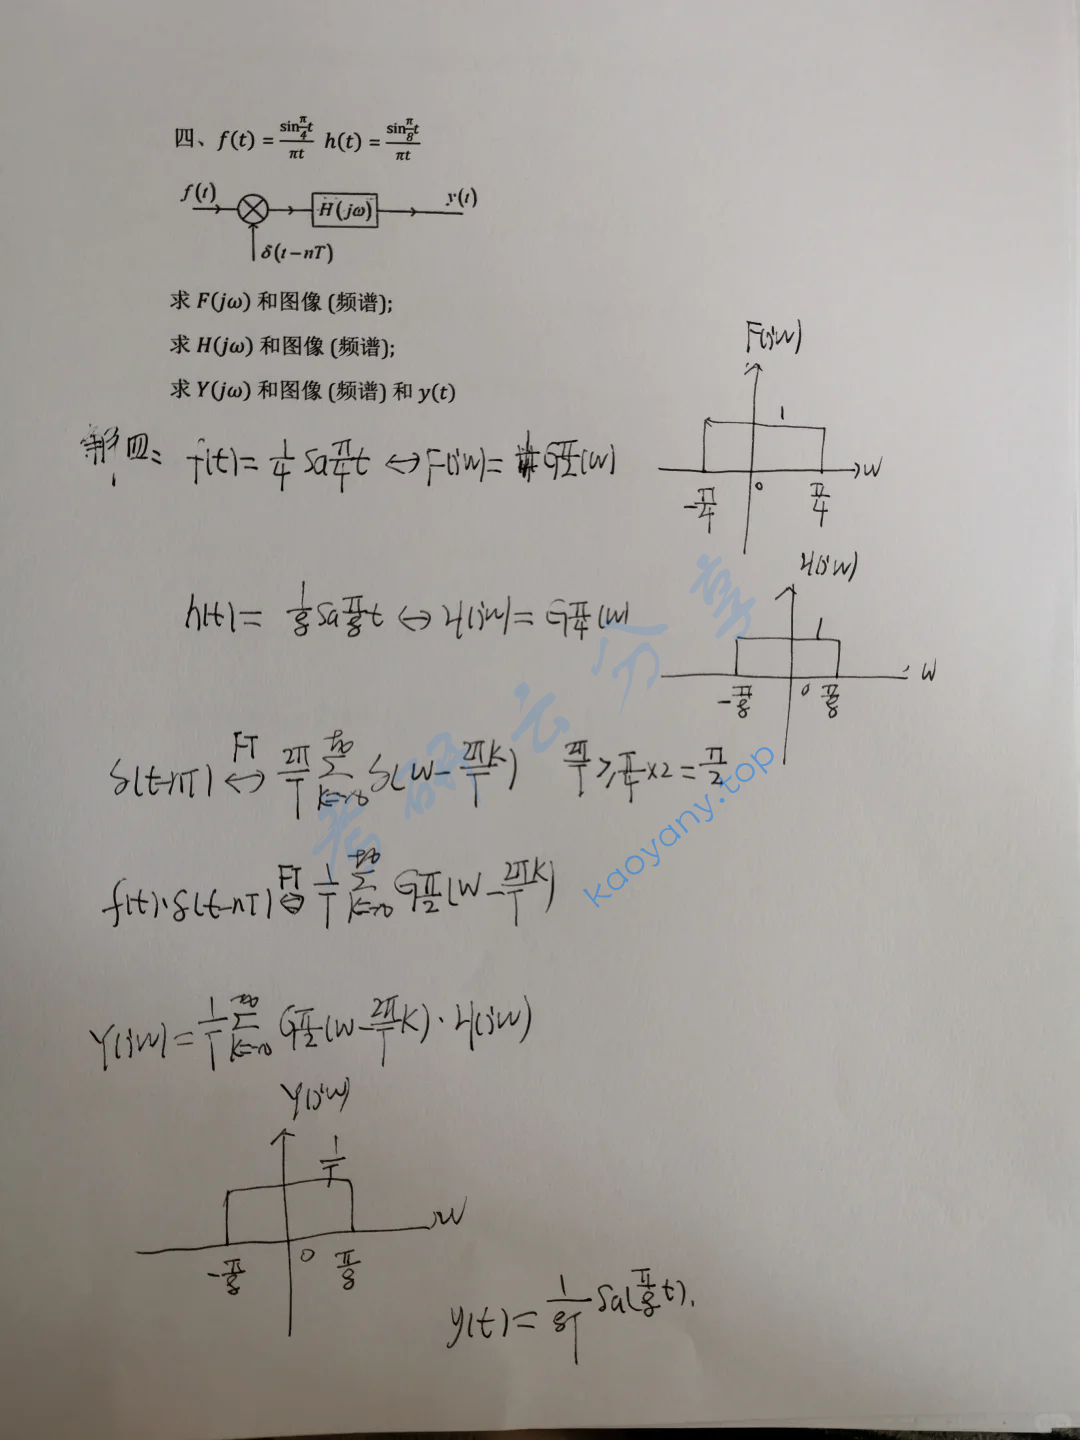 四、f(t) = sin(π/4)t / πt  h(t) = sin(π/8)t / πt
f(t)  y(t)
H(jω)
δ(t−nT)
求 F(jω) 和图像 (频谱);
求 H(jω) 和图像 (频谱);
求 Y(jω) 和图像 (频谱) 和 y(t)
解四: f(t) = 1/4 Sa π/4 t ↔ F(jw) = G π/2 (w)
F(jw)
1
w
-π/4  0  π/4
h(t) = 1/8 Sa π/8 t ↔ H(jw) = G π/4 (w)
H(jw)
1
w
-π/8  0  π/8
δ(t-nT) FT↔ 2π/T Σ(k=-∞, +∞) δ(w - 2πk/T)  2π/T ≥ π/4 ×2 = π/2
f(t)·δ(t-nT) FT⇔ 1/T Σ(k=-∞, +∞) G π/2 (w - 2πk/T)
Y(jw) = 1/T Σ(k=-∞, +∞) G π/2 (w - 2π/T k) · H(jw)
Y(jw)
1/T
w
-π/8  0  π/8
y(t) = 1/8T Sa(π/8 t).
考研云分享
kaoyany.top